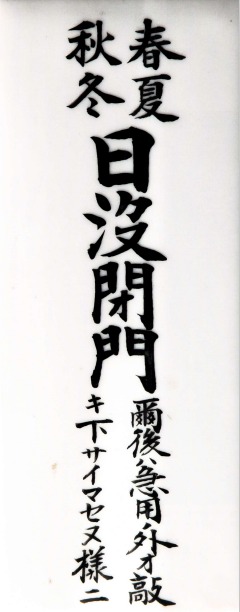 春夏
秋冬
日没閉門
爾後ハ急用ノ外オ敲
キ下サイマセヌ様ニ